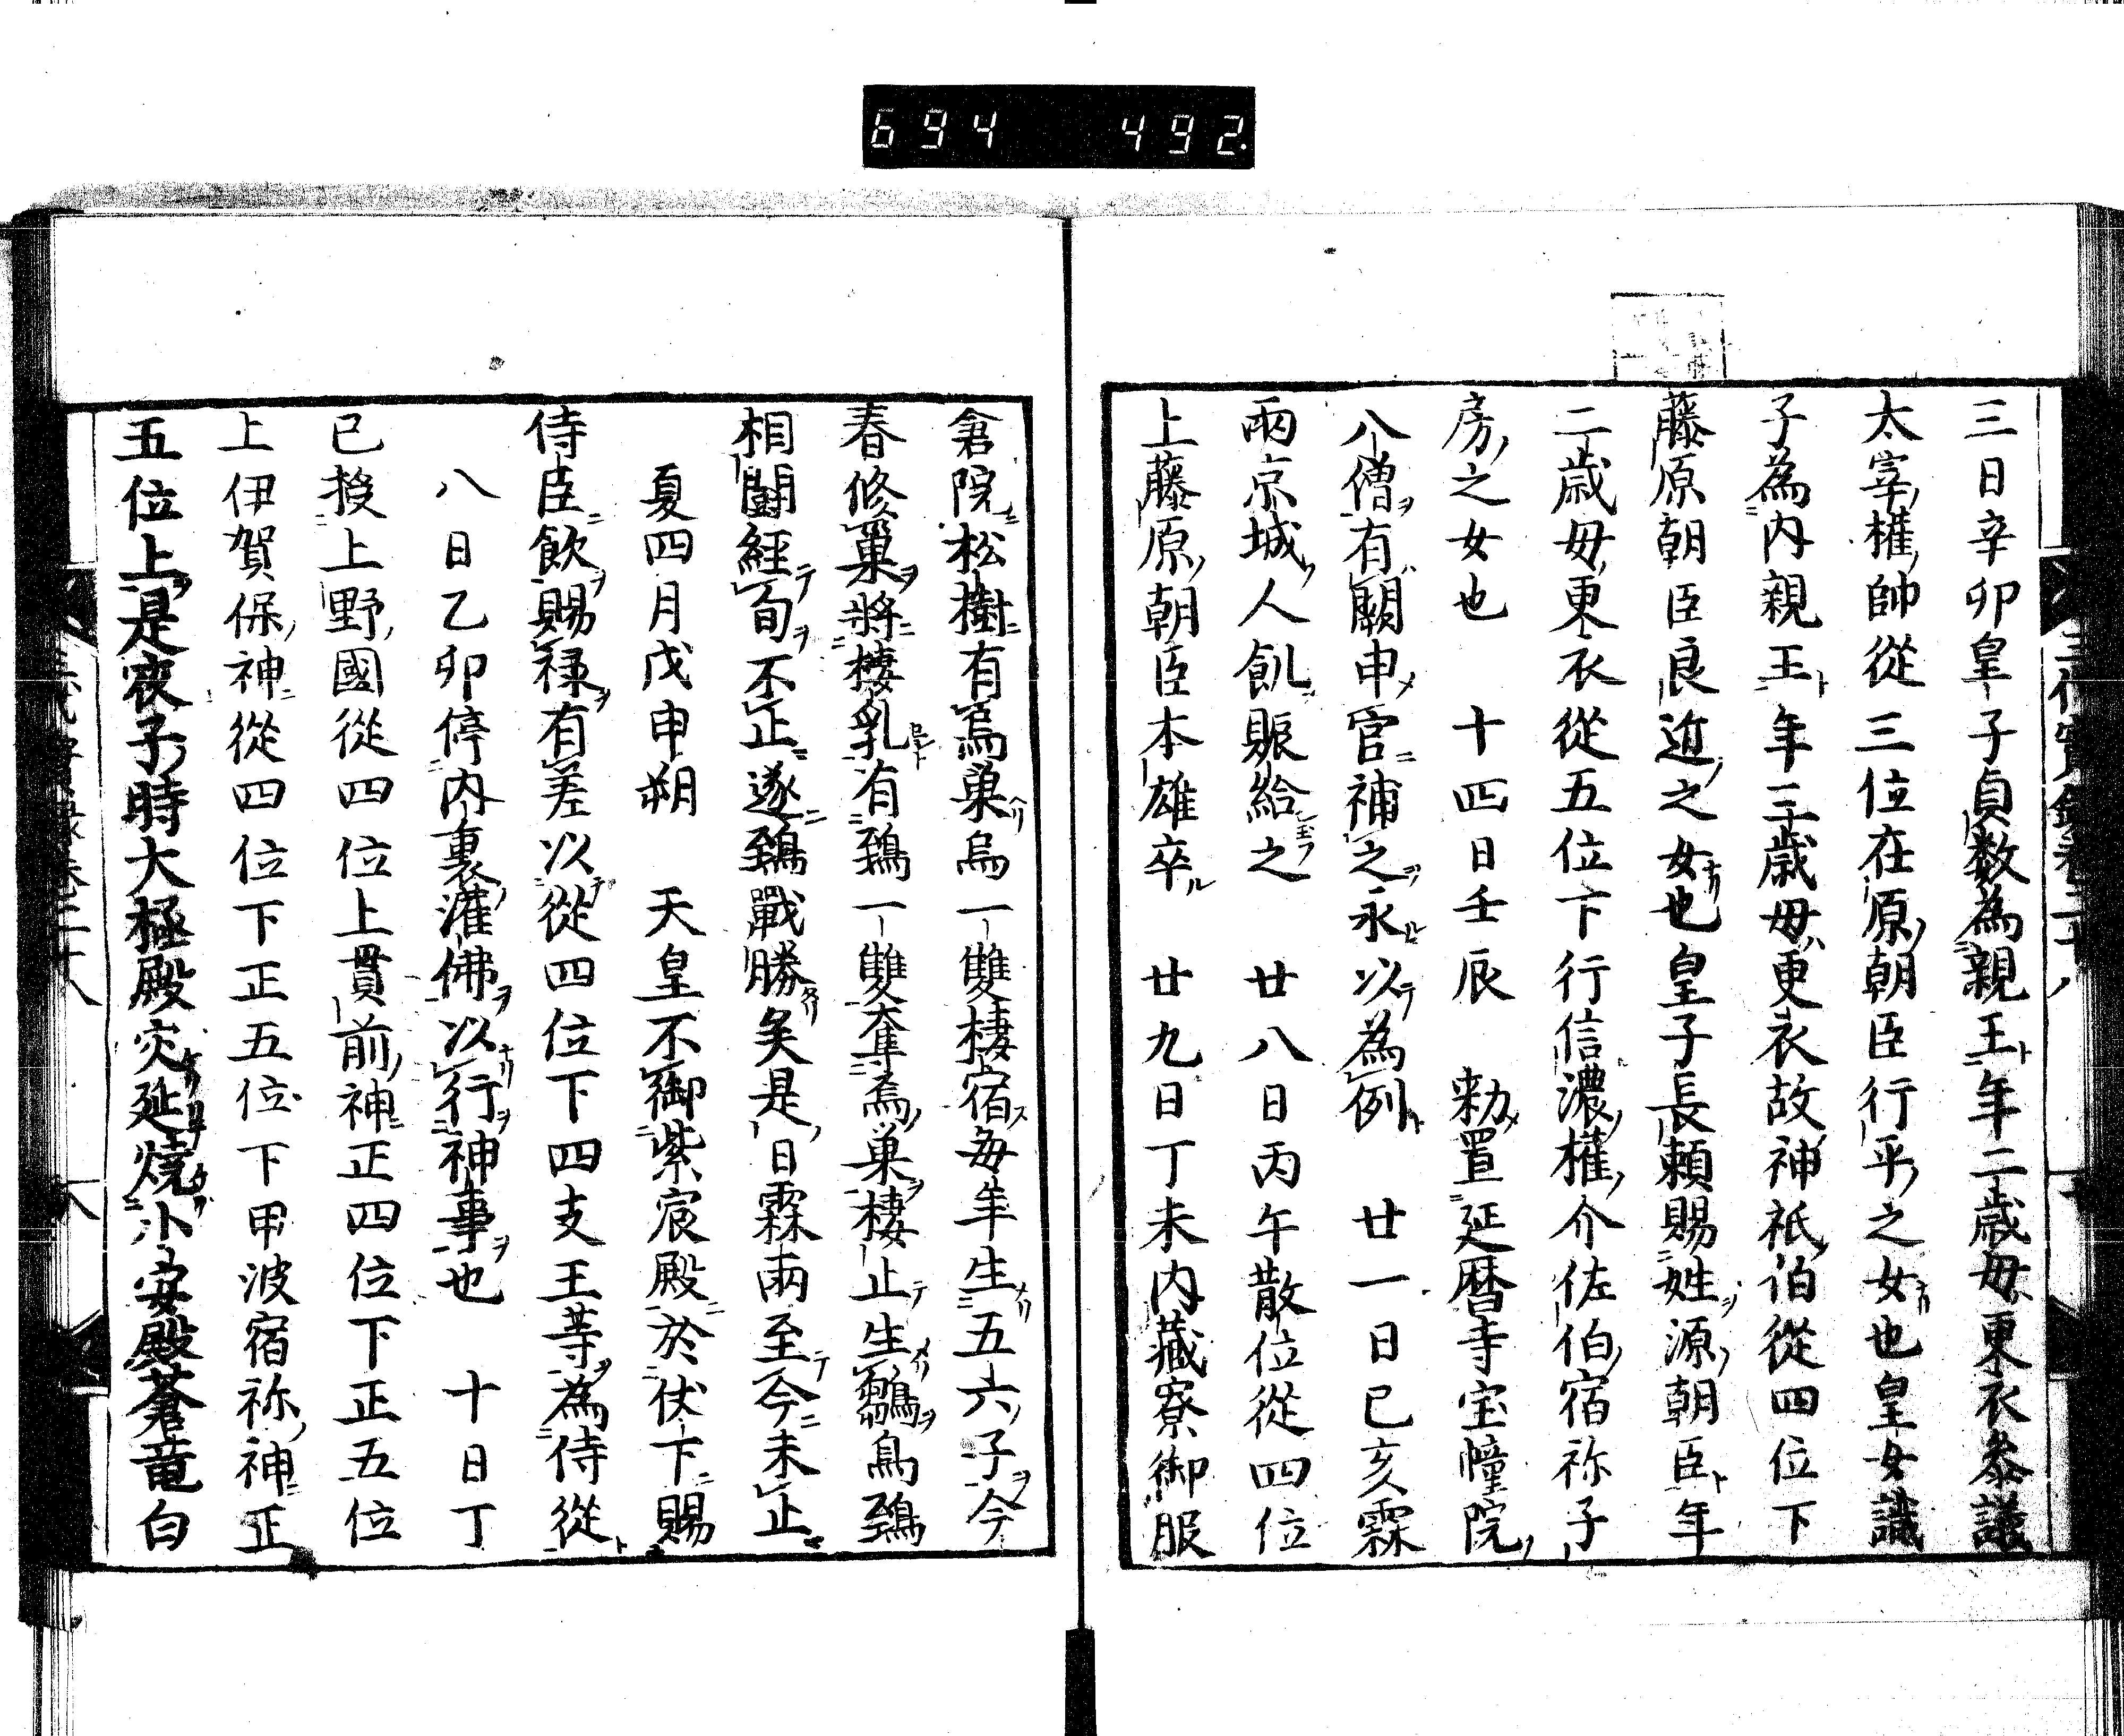 694 492
三日辛卯皇子貞数為親王年二歳毋更衣參議
太宰權帥從三位在原朝臣行平之女也皇女識
子為内親王年三歳毋更衣故神祇伯從四位下
藤原朝臣良近之女也皇子長頼賜姓源朝臣年
二歳毋更衣從五位下行信濃權介佐伯宿祢子
房之女也　十四日壬辰　勅置延暦寺宝幢院
八僧有闕申官補之永以為例　廿一日已亥霖
兩京城人飢賑給之　廿八日丙午散位從四位
上藤原朝臣本雄卒　廿九日丁未内藏寮御服
倉院松樹有烏巣烏一雙棲宿毎年生五六子今
春修巣將棲乳有鵄一雙奪烏巣棲止生鶵烏鵄
相闘經旬不止遂鵄戰勝矣是日霖雨至今未止
夏四月戊申朔　天皇不御紫宸殿於伏下賜
侍臣飲賜禄有差以從四位下四支王等為侍從
八日乙卯停内裏灌佛以行神事也　十日丁
已授上野國從四位上貫前神正四位下正五位
上伊賀保神從四位下正五位下甲波宿祢神正
五位上是夜子時大極殿灾延燒小安殿蒼竜白